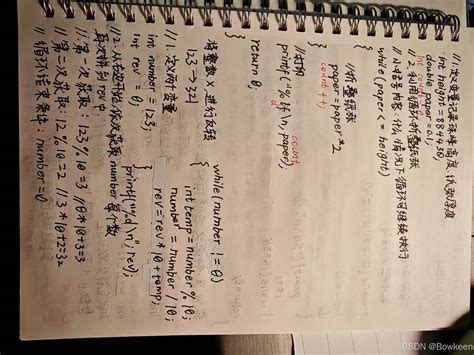 //1.定义变量记录珠峰高度、纸张厚度
int height=8844360;
double paper=0.1;
int count=0;
//利用循环折叠纸张
//小括号书写:什么情况下循环可继续执行
while(paper<=height)
{
//折叠纸张
paper=paper*2
count++;
}
//打印
count
printf("%lf\n,paper);
d
return 0;
}
将整数X进行反转
123→321
//1.定义两个变量
int number=123;
int rev=0;
//2.从右边开始,依次获取number每个数
再次转到rev中
//第一次获取:123%10=3 //0*10+3=3
//第二次获取:12%10=2 //3*10+2=32
//循环结束条件:number=0
while(number!=0)
{
int temp=number%10;
number=number/10;
rev=rev*10+temp;
}
printf("%d\n",rev);
CSDN @Bowkeen